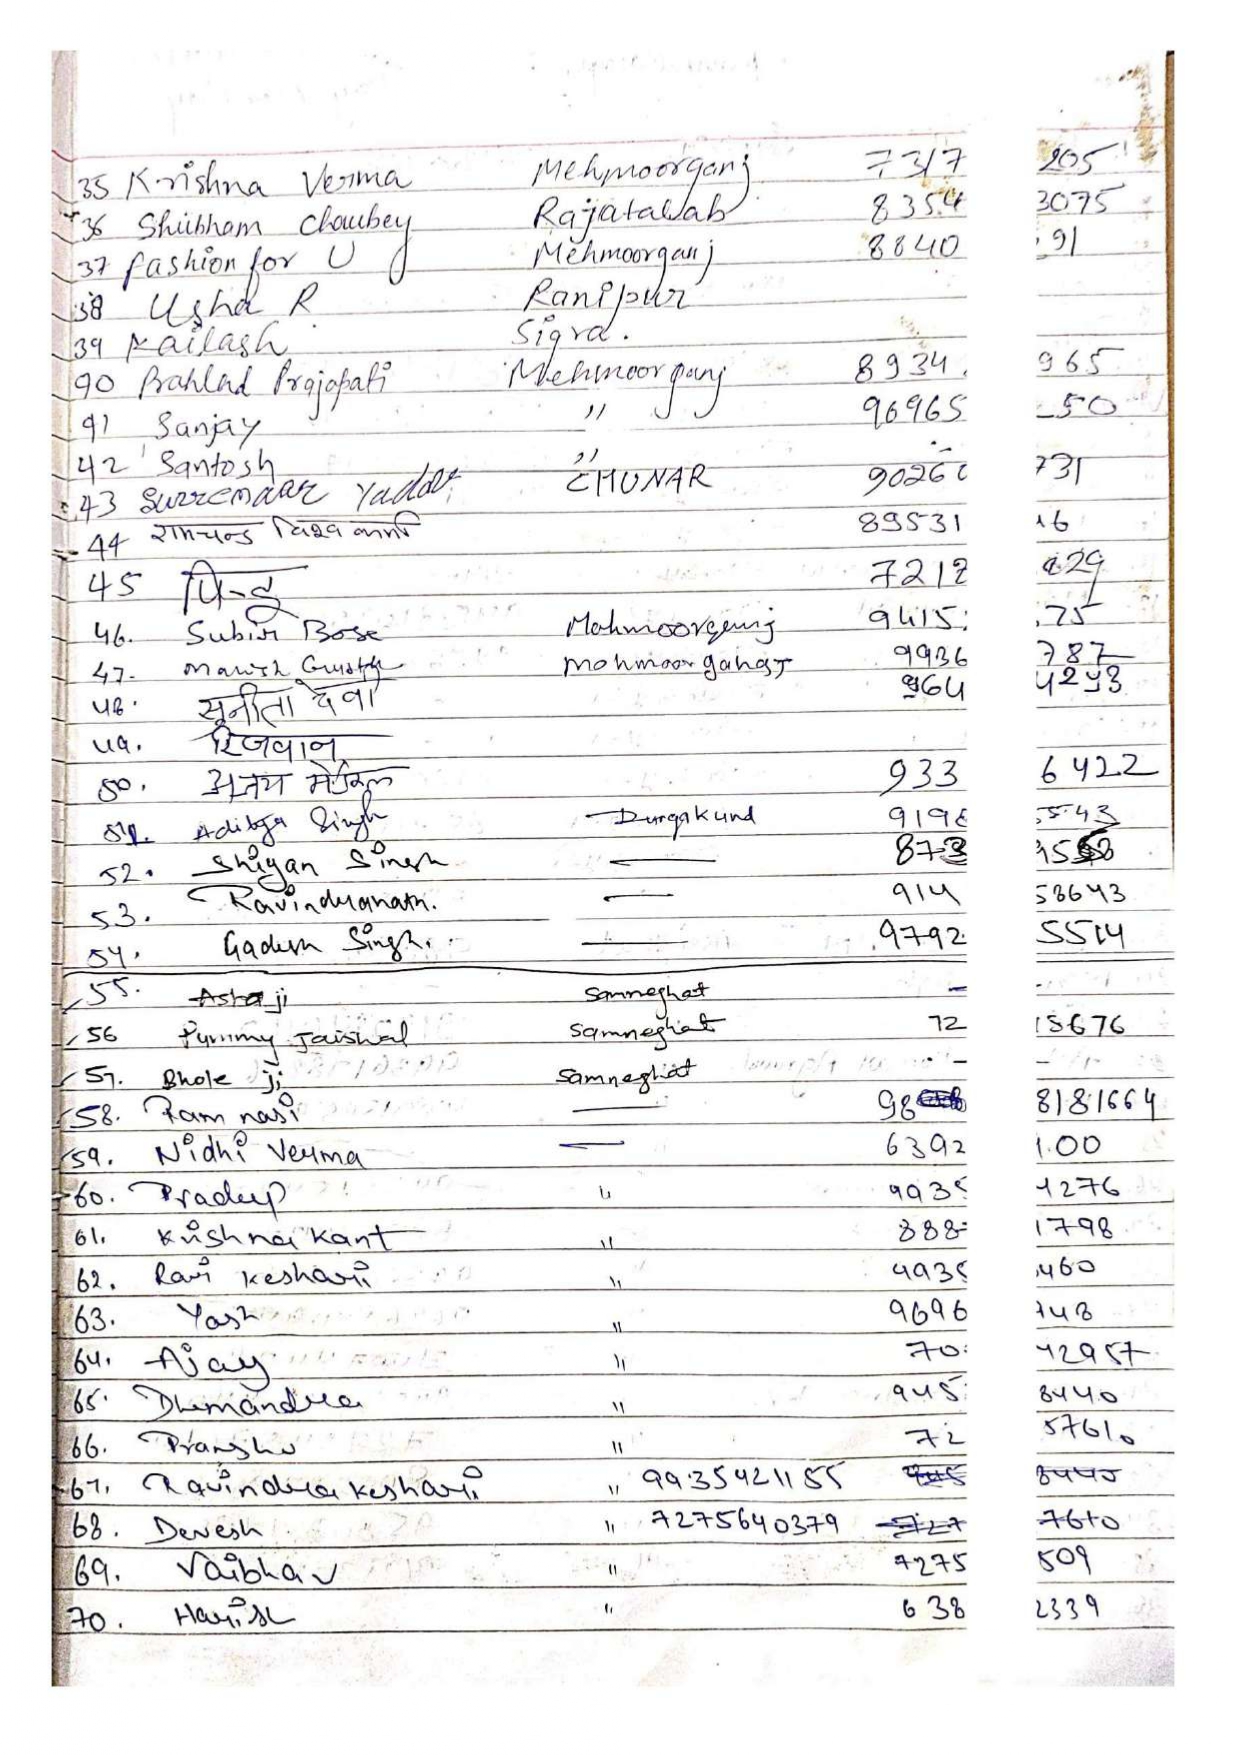 35 Krishna Verma Mehmoorganj 7317 205
36 Shubham Choubey Rajatalab 8354 3075
37 fashion for U Mehmoorganj 8840 91
38 Usha R Ranipur
39 Kailash Sigra.
90 Prahlad Prajapati Mehmoorganj 8934 965
91 Sanjay " 96965 50
42 Santosh "
43 Yadav CHUNAR 9026 731
44 रामचन्द्र विश्वकर्मा 89531 16
45 पिन्टू 7212 229
46. Subir Bose Mahmoorganj 9415 75
47. Manish Gupta Mohmoorganj 9936 787
48. सुनीता देवी 964 4293
49. रिजवान
50. अजय मेडिकल 933 6422
51. Aditya Singh Durgakund 919 5543
52. Singh — 873
53. Ravindranath. — 914 58643
54. Gadesh Singh. — 9792 5514
55. Asha ji Samneghat -
56 Pummy Jaiswal Samneghat 72 15676
57. Bhole ji Samneghat - -
58. Ram nasi — 98 8181664
59. Nidhi Verma — 6392 1.00
60. Pradeep " 9935 4276
61. Krishna Kant " 888 1798
62. Ravi Keshari " 9935 460
63. Yash " 9696 748
64. Ajay " 70 42957
65. Dhirmandra " 945 8440
66. Pranshu " 72 57610
67. Ravindra Keshari " 9935421155 945 8440
68. Devesh " 7275640379 727 7610
69. Vaibhav " 7275 509
70. Harish " 638 2339